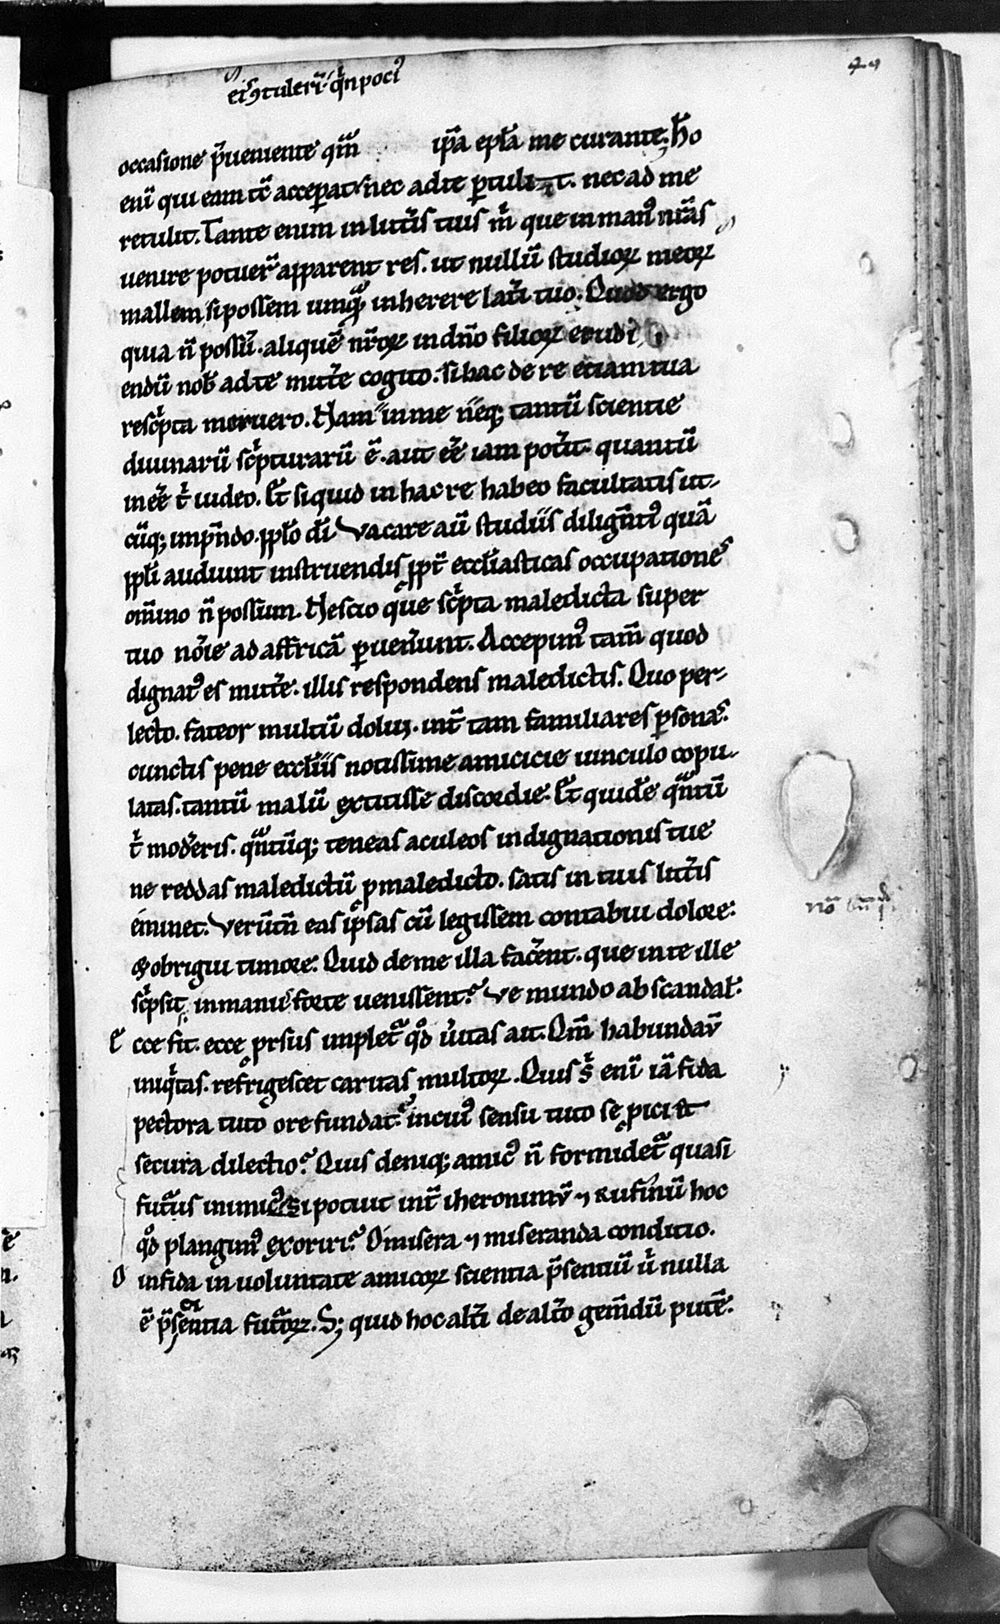 ei ɔtulerī. q̄n poci᷒
49
occasione p̄ueniente qm̄ ip̄a epl̄a me curante. Ho
enī qui eam tc̄ acceperat nec ad te ꝑtulit. nec ad me
retulit. Tante enim in litt̄is tuis m̄ que in man᷒ nr̄as
uenire potuer̄ apparent res. ut nullū studioꝝ meoꝝ
mallem si possem umq̄ inherere lat̄i tuo. Quod ergo
quia n̄ possū. aliquē nr̄oꝝ in dn̄o filioꝝ erudi
endū nob̄ ad te mitt̄e cogito. si hac de re etiam tua
resc̄pta meruero. Nam in me neq; tantū scientie
diuinarū sc̄pturarū ē. aut eē iam pot̄it. quantū
inēē t̄ uideo. Et siquid in hac re habeo facultatis ut-
cūq; inpn̄do pp̄lo dī. Vacare aū studiis dilign̄ti᷒ quā
pp̄li audiunt instruendis ꝓpt̄ eccl̄iasticas occupationes
om̄ino n̄ possum. Nescio que sc̄pta maledicta super
tuo noīe ad affricā ꝑuener̄unt. Accepim᷒ tam̄ quod
dignat᷒ es mitt̄e. illis respondens maledictis. Quo per-
lecto. fateor multū dolui. int̄ tam familiares ꝑsonas.
cunctis pene eccl̄iis notissime amicicie uinculo copu-
latas. tantū malū extitisse discordie. Et quidē qn̄tū
t̄ mod̄eris. qn̄tūq; teneas aculeos indignationis tue
ne reddas maledictū p maledicto. satis in tuis litt̄is
eminet. Verūtn̄ eas ip̄sas cū legissem contabui dolore.
⁊ obrigui timore. Quid de me illa fac̄ent. que in te ille
sc̄psit. in manū forte uenissent. Ve mundo ab scandal̄.
Ecce fit. ecce prsus implet᷒ qd̄ ūitas ait. Qm̄ habundaū
iniq̄tas. refrigescet caritas multoꝝ. Quis s̄ enī iā fida
pectora tuto ore fundat. in cui᷒ sensu tuto se ꝓiciat
secura dilectio. Quis deniq; amic᷒ n̄ formidet᷒ quasi
fut̄us inimic᷒. Si potuit int̄ iheronimū ⁊ rufinū hoc
qd̄ plangim᷒ exoriri. O misera ⁊ miseranda conditio.
O infida in uoluntate amicoꝝ scientia p̄sentiū ū nulla
ē p̄scientia fut̄oꝝ. S; quid hoc alt̄i de alt̄o gem̄dū putē.